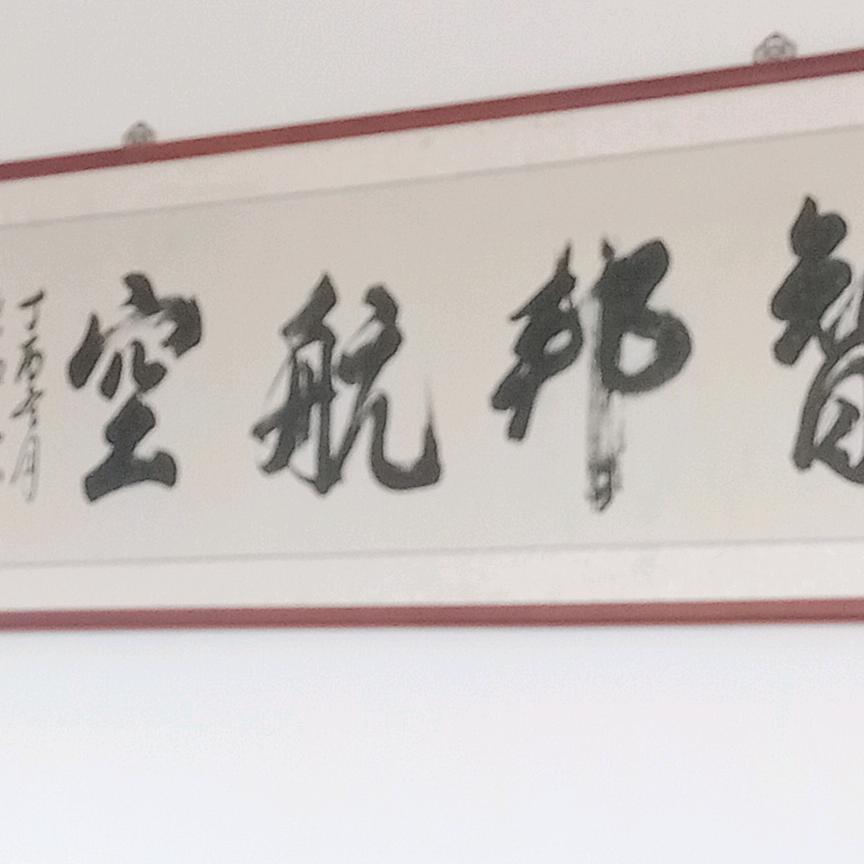 智邦航空
丁酉冬月